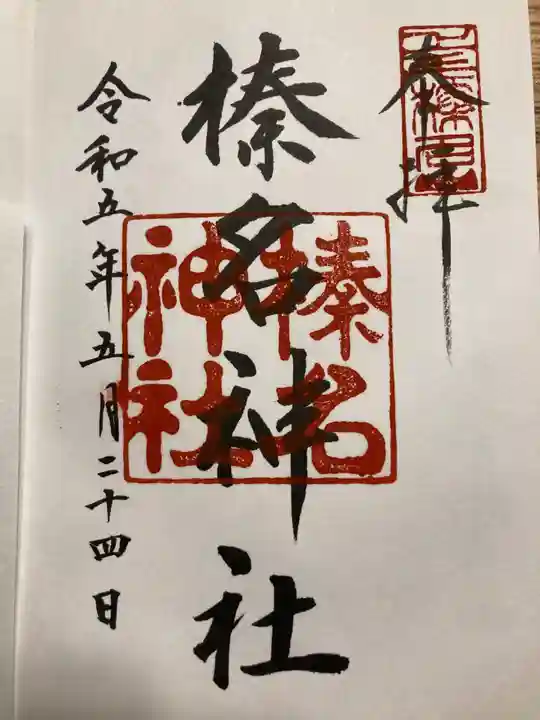 奉拝
榛名神社
榛名
神社
令和五年五月二十四日